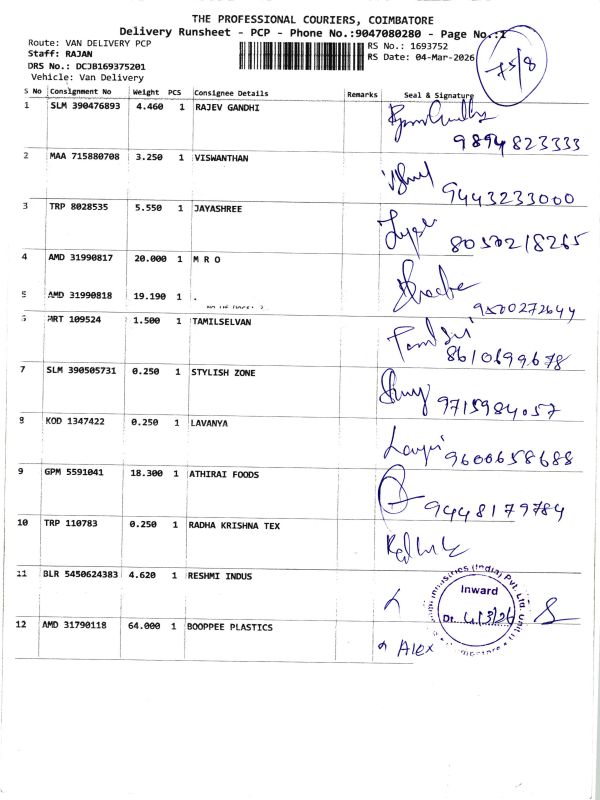 THE PROFESSIONAL COURIERS, COIMBATORE
Delivery Runsheet - PCP - Phone No.:9047080280 - Page No.:1
Route: VAN DELIVERY PCP
Staff: RAJAN
DRS No.: DCJB169375201
Vehicle: Van Delivery
RS No.: 1693752
RS Date: 04-Mar-2026
75/8
S No Consignment No Weight PCS Consignee Details Remarks Seal & Signature
1 SLM 390476893 4.460 1 RAJEV GANDHI
9894823333
2 MAA 715880708 3.250 1 VISWANTHAN
9443233000
3 TRP 8028535 5.550 1 JAYASHREE
8050218265
4 AMD 31990817 20.000 1 M R O
5 AMD 31990818 19.190 1 .
9500272644
6 MRT 109524 1.500 1 TAMILSELVAN
8610699678
7 SLM 390505731 0.250 1 STYLISH ZONE
9715984057
8 KOD 1347422 0.250 1 LAVANYA
9600658688
9 GPM 5591041 18.300 1 ATHIRAI FOODS
9448179784
10 TRP 110783 0.250 1 RADHA KRISHNA TEX
11 BLR 5450624383 4.620 1 RESHMI INDUS
Industries (India) Pvt. Ltd. Unit
Inward
Dt. 4/3/26
12 AMD 31790118 64.000 1 BOOPPEE PLASTICS
Alex